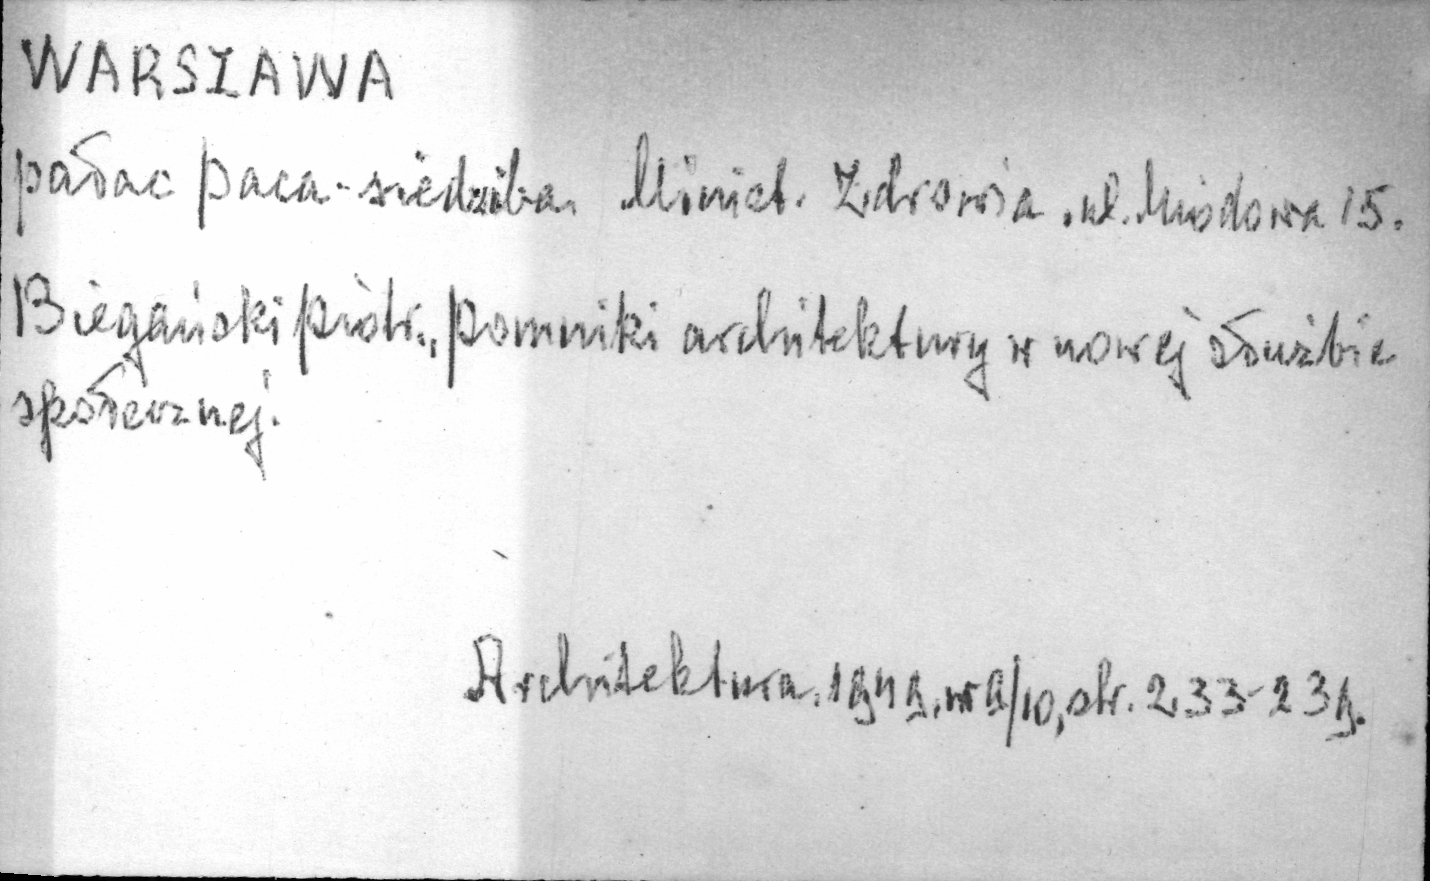 WARSZAWA
pałac Paca - siedziba Minist. Zdrowia, ul. Miodowa 15.
Biegański Piotr., Pomniki architektury w nowej służbie
społecznej.
Architektura. 1949. nr 9/10, str. 233-239.